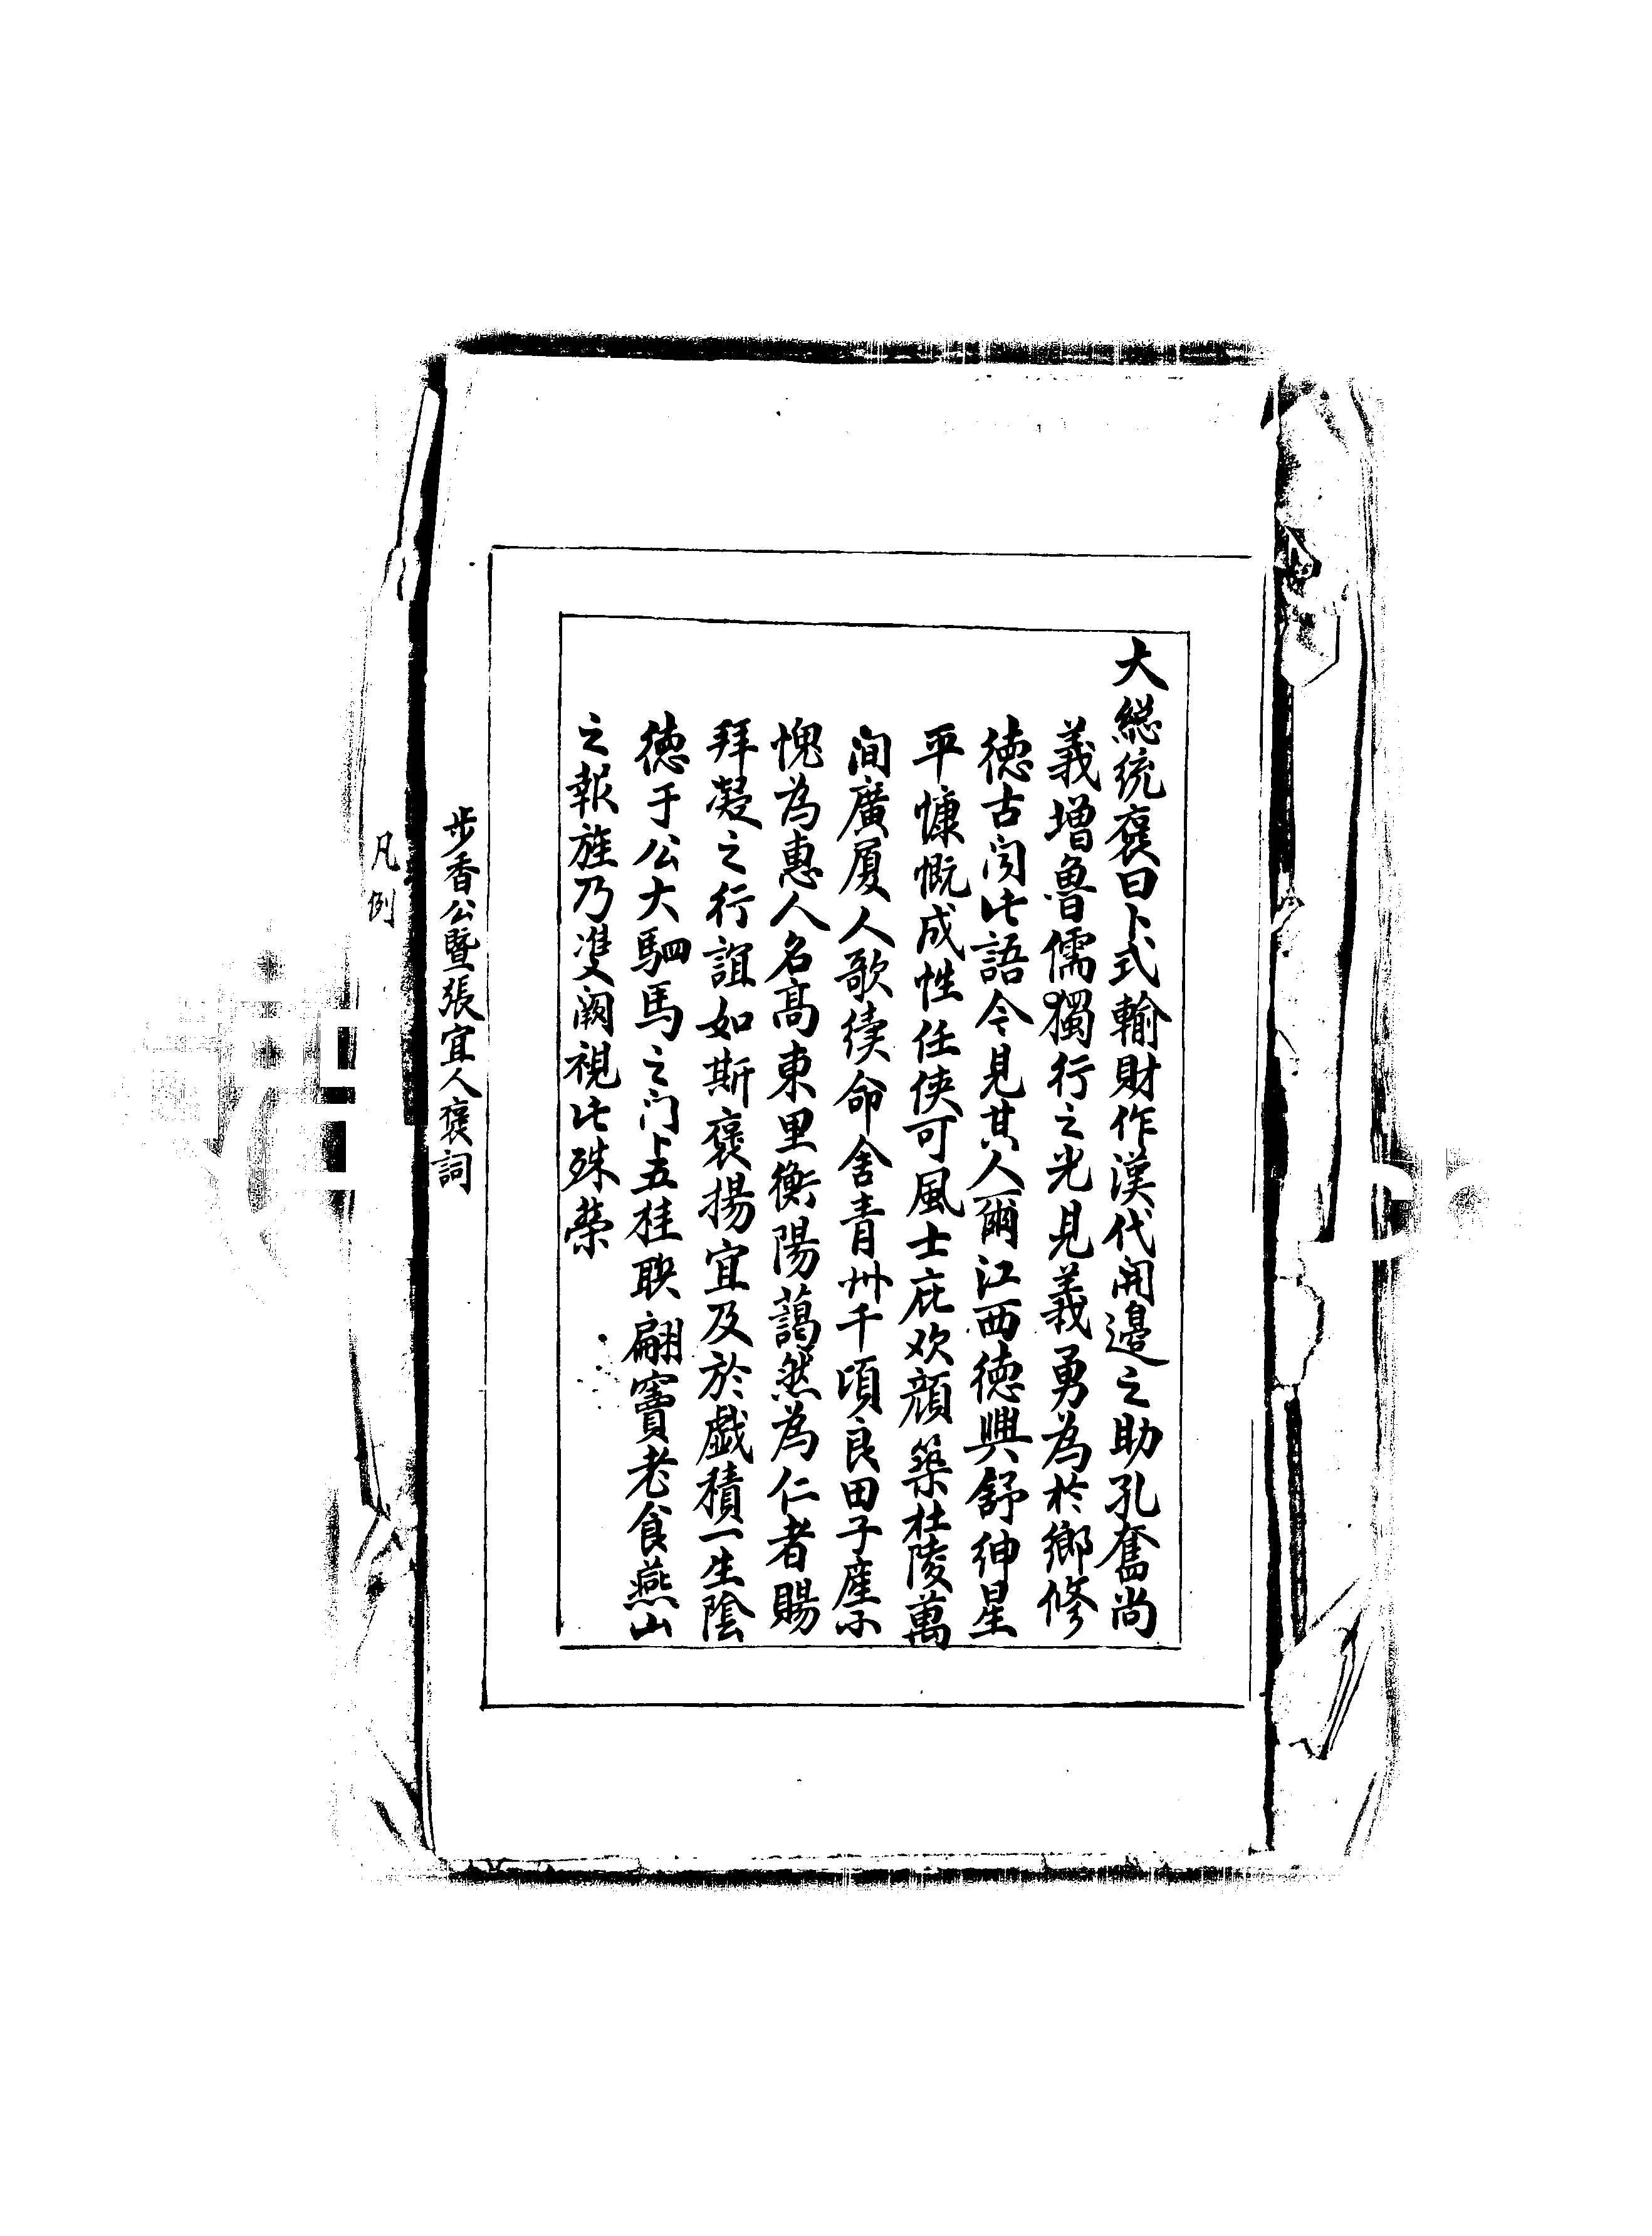 大総統褒曰卜式輸財作漢代開邊之助孔奮尚
義增魯儒獨行之光見義勇為於鄉修
德古闻此語今見其人爾江西德興舒紳星
平慷慨成性任俠可風士庇欢顔築杜陵萬
间廣厦人歌續命舍青州千頃良田子產不
愧為惠人名高東里衡陽藹然為仁者賜
拜凝之行誼如斯褒揚宜及於戯積一生陰
德于公大駟馬之门五桂联翩竇老食燕山
之報旌乃雙阙視此殊榮
步香公暨張宜人褒詞
凡例